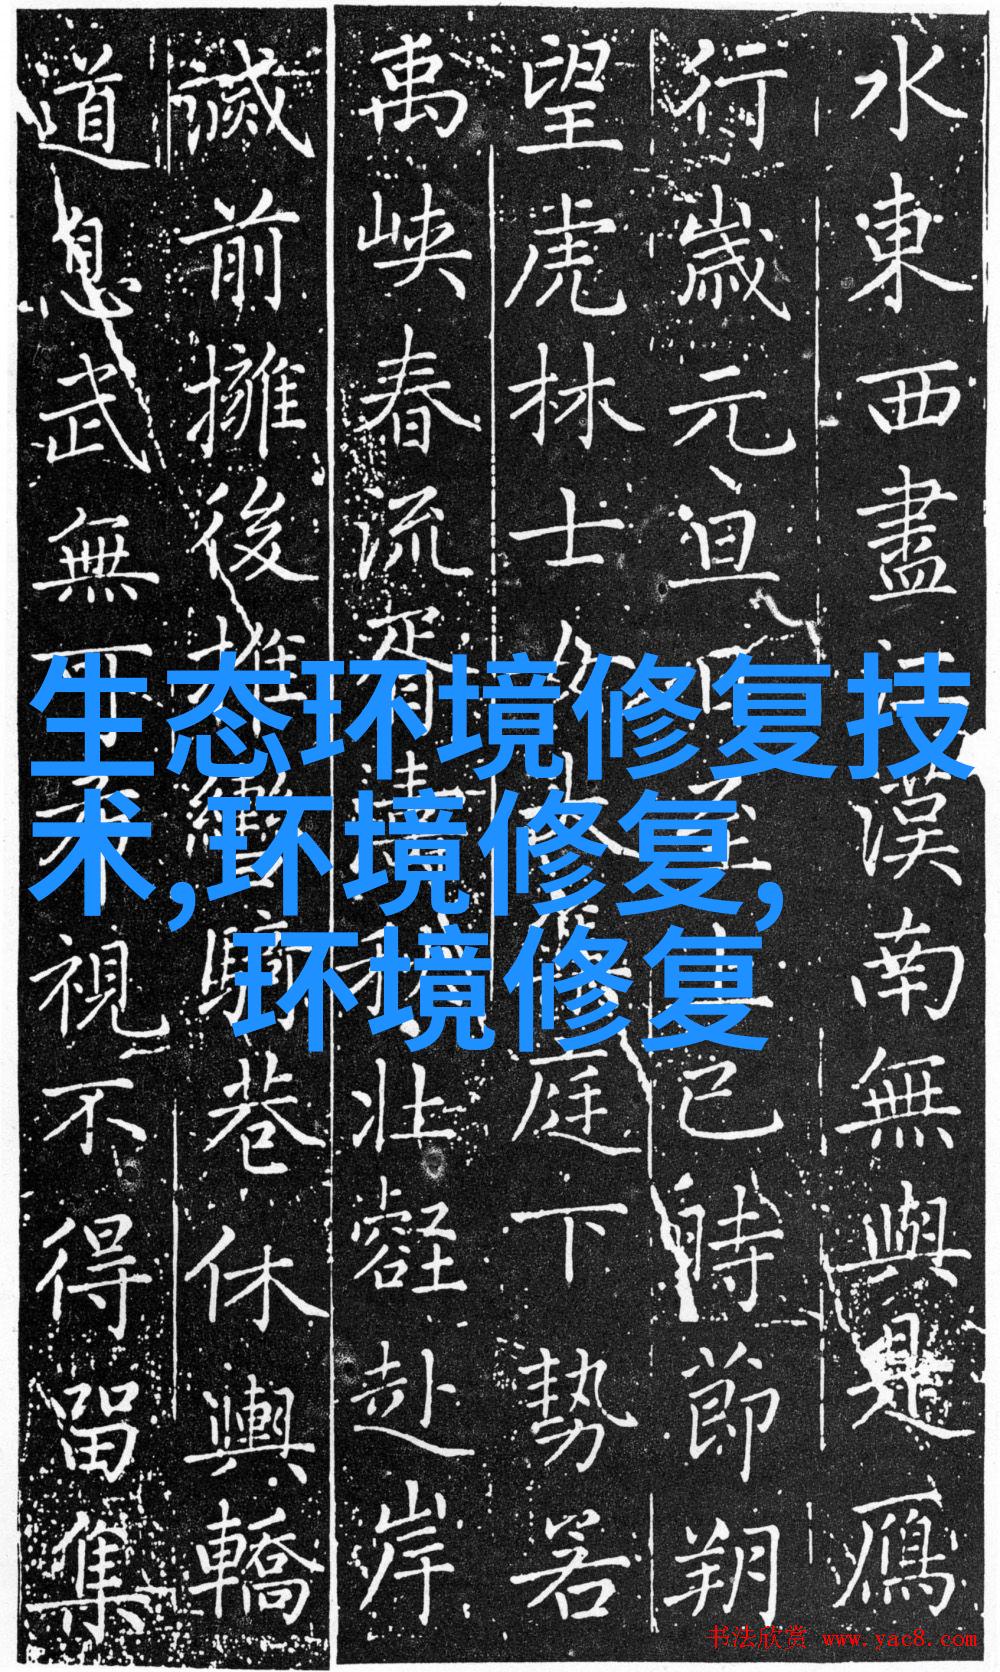 生态环境修复技
术,环境修复,
环境修复
水東西盡漢南無與是鴈
行歲元旦已時節朔
望虎林士庭下勢若
禹峽春流胥壯壑赴岸
前擁後推巷休輿轎
道息武無視不得留集
书法欣赏 www.yac8.com